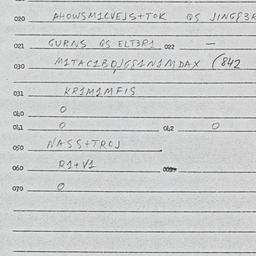 020 AHOWSM1LVEJS+TOK QS JINGF3R
021 GURNS GS ELT3R1 022 —
030 M1TAC1BOJGS1N1MDAX (842
031 KR1M1MFIS
040 0
041 0 042 0
050 NASS+TROJ
060 R1+V1
070 0